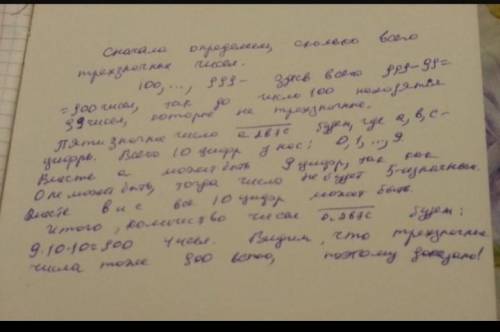 Сначала определем, сколько всего
трехзначных чисел.
100, ..., 999 - здесь всего 999-99=
=900 чисел, так до число 100 находятся
99 чисел, которые не трехзначные.
Пятизначное число будем, где a, b, c -
цифры. Всего 10 цифр у нас: 0, 1, ..., 9.
Вместо a может быть 9 цифр, так как
0 не может быть, тогда число не будет 5-значным.
Вместо b и c все 10 цифр может быть.
Итого, количество чисел будем:
9·10·10=900 чисел. Видим, что трехзначные
числа тоже 900 всего, поэтому доказано!